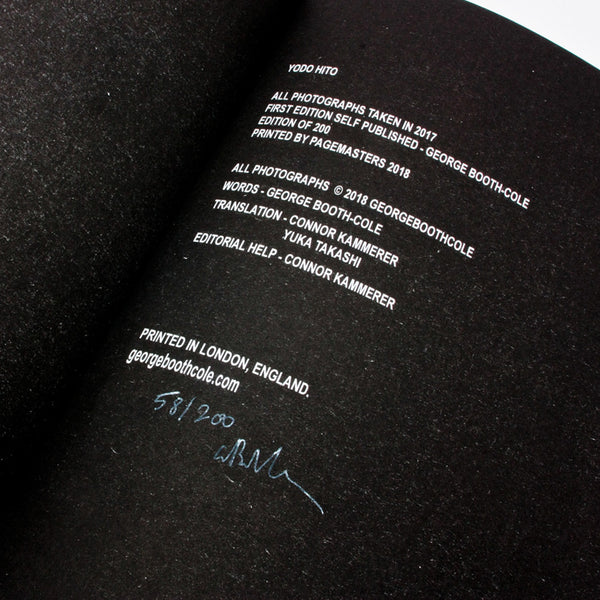 YODO HITO
ALL PHOTOGRAPHS TAKEN IN 2017
FIRST EDITION SELF PUBLISHED - GEORGE BOOTH-COLE
EDITION OF 200
PRINTED BY PAGEMASTERS 2018
ALL PHOTOGRAPHS © 2018 GEORGEBOOTHCOLE
WORDS - GEORGE BOOTH-COLE
TRANSLATION - CONNOR KAMMERER
YUKA TAKASHI
EDITORIAL HELP - CONNOR KAMMERER
PRINTED IN LONDON, ENGLAND.
georgeboothcole.com
58/200